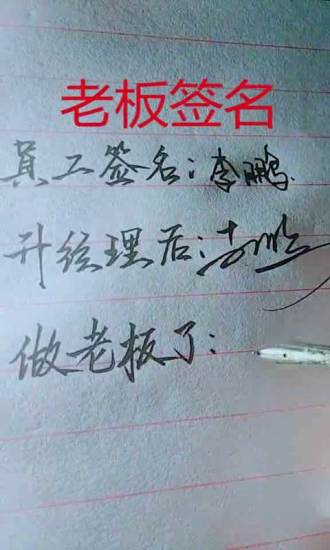 老板签名
员工签名：李鹏
升经理后：
做老板了：